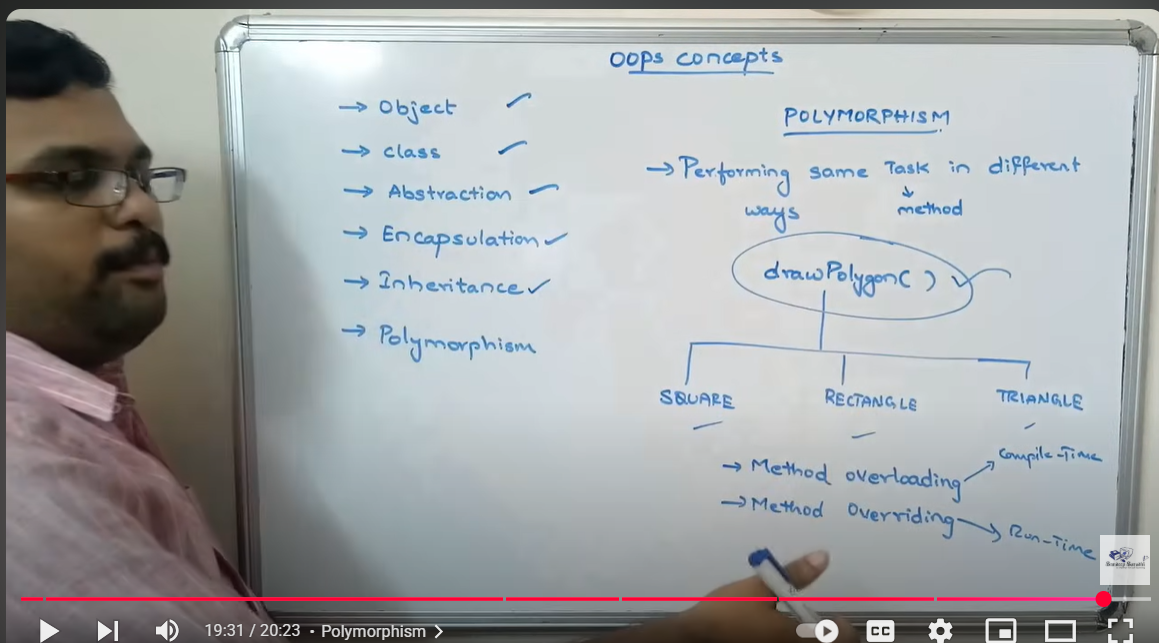 OOPS concepts
→ Object ✓
→ class ✓
→ Abstraction ✓
→ Encapsulation ✓
→ Inheritance ✓
→ Polymorphism
POLYMORPHISM
→ Performing same Task in different
ways
method
drawPolygon( )
SQUARE
RECTANGLE
TRIANGLE
→ Method overloading
Compile-Time
→ Method Overriding
Run-Time
19:31 / 20:23 • Polymorphism
CC